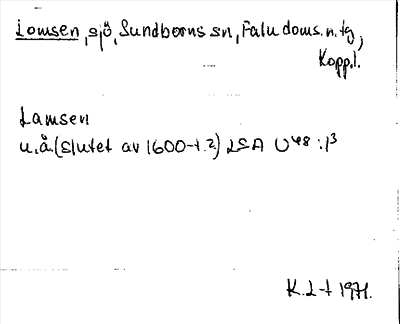 Lomsen, sjö, Sundborns sn, Falu doms. n. tg,
Kopp.l.
Lamsen
u.å. (slutet av 1600-t.?) LSA U48:13
K.L-t 1971.